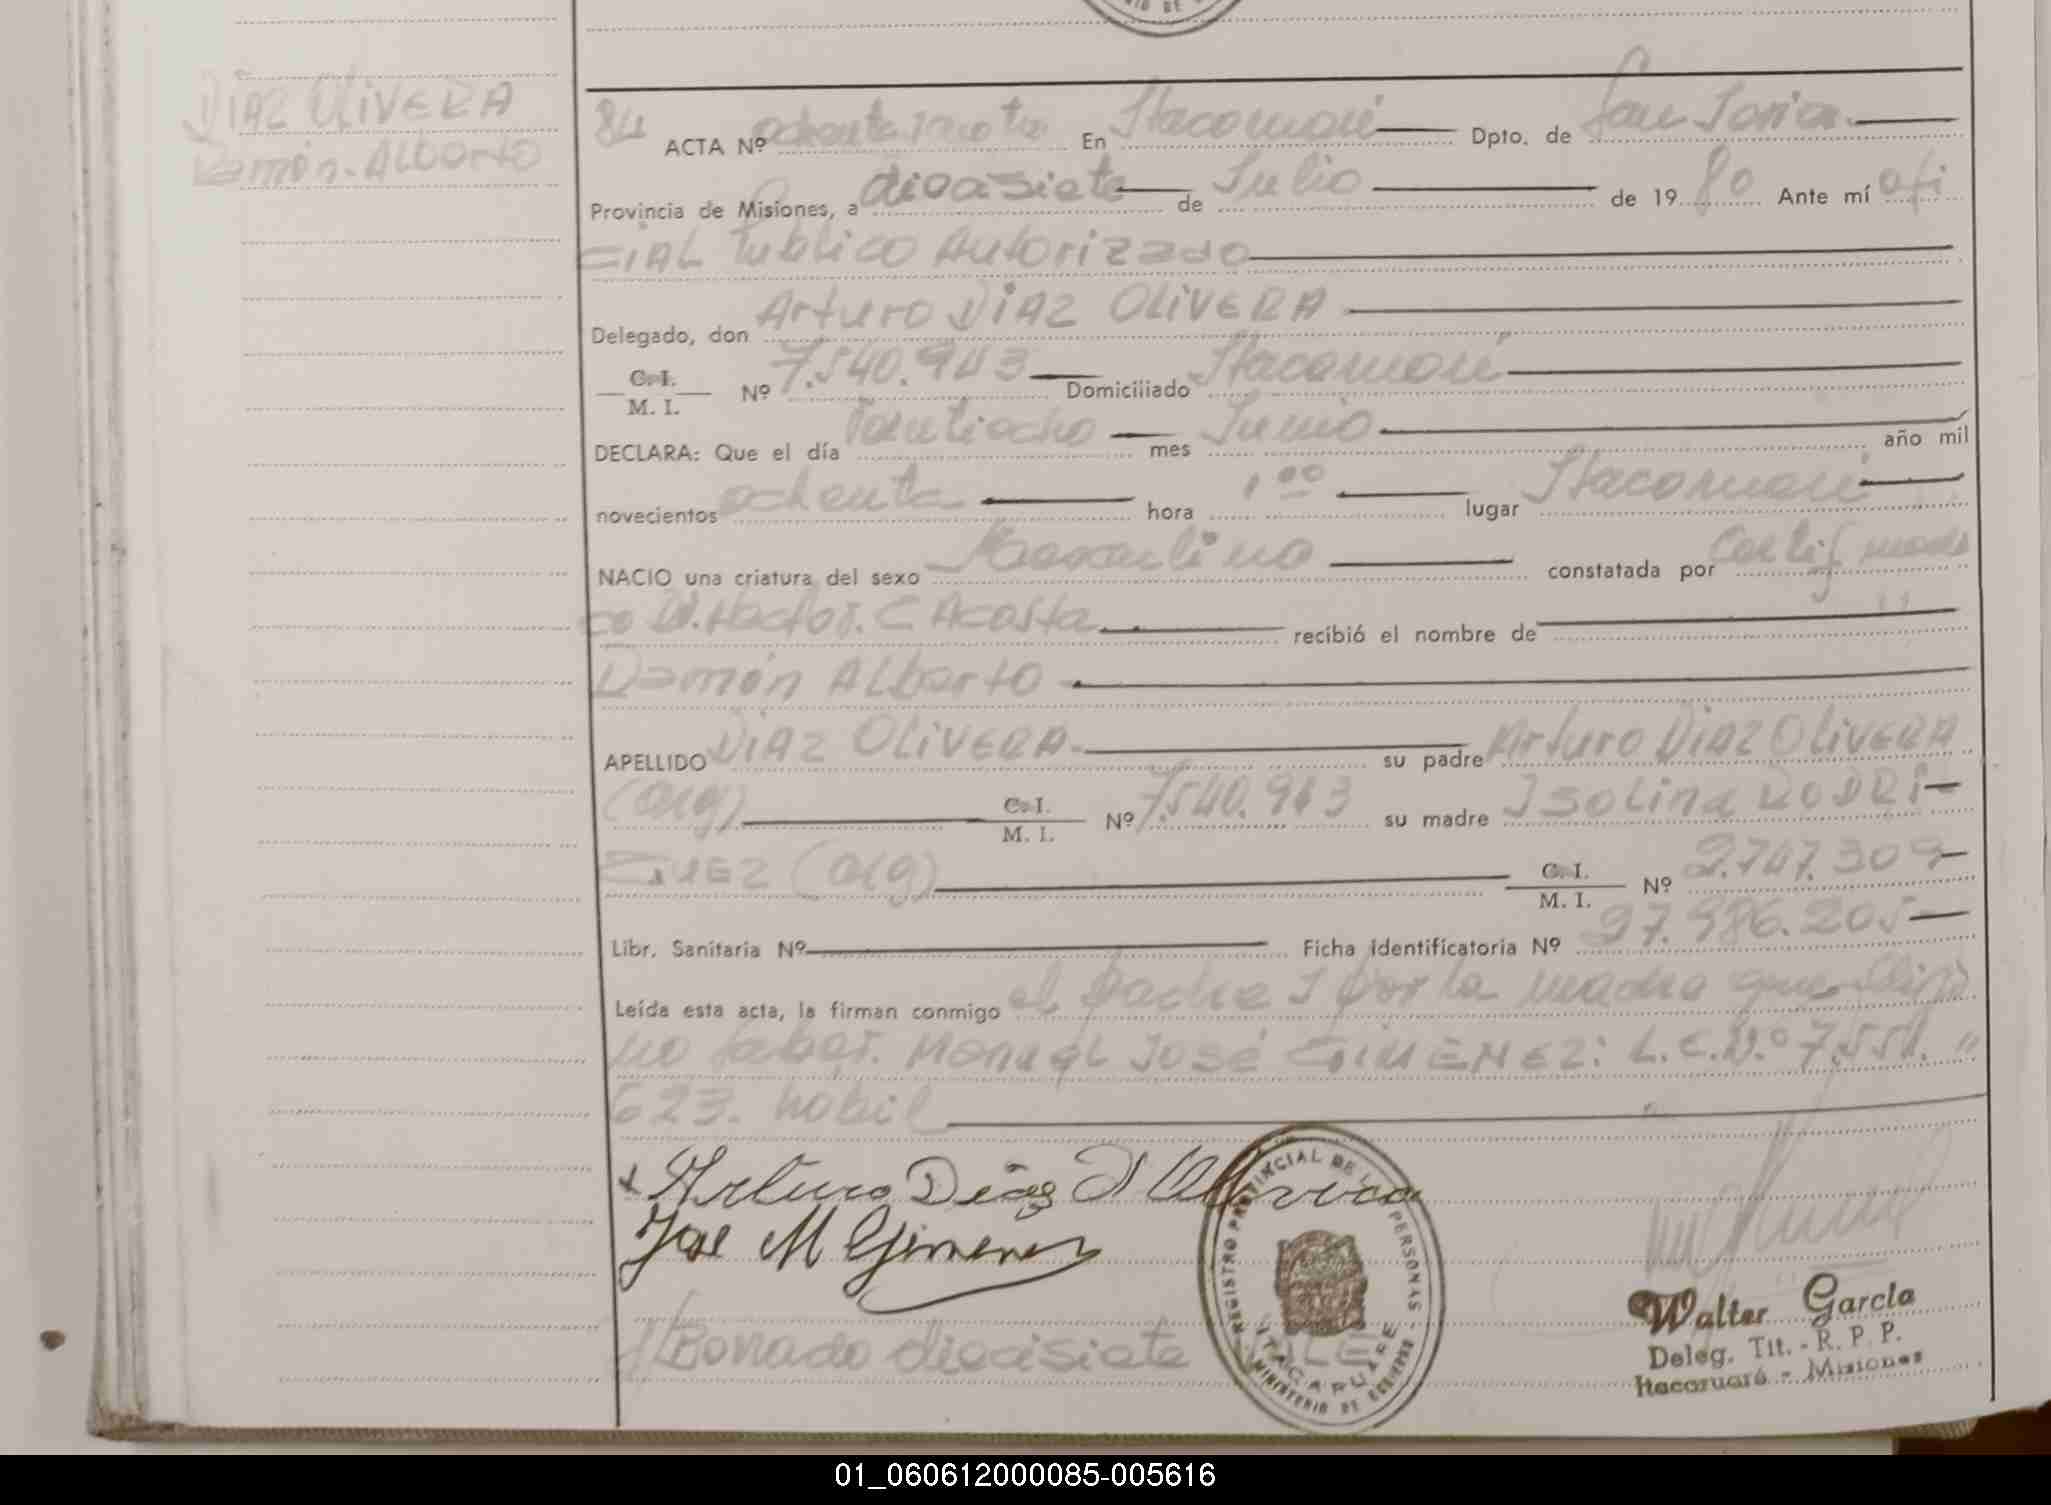 MINISTERIO DE
DIAZ OLIVERA
Ramón Alberto
84 ACTA Nº ochenta y cuatro En Itacaruaré Dpto. de San Javier
Provincia de Misiones, a diecisiete de Julio de 1980 Ante mí ofi
CIAL Público Autorizado
Delegado, don Arturo DIAZ OLIVERA
C. I. M. I. Nº 7.540.943 Domiciliado Itacaruaré
DECLARA: Que el día mes Junio año mil
novecientos ochenta hora 1 00 lugar Itacaruaré
NACIO una criatura del sexo Masculino constatada por Certif. medi
co C Acosta recibió el nombre de
Ramón Alberto
APELLIDO DIAZ OLIVERA su padre Arturo DIAZ OLIVERA
(Arg) C. I. M. I. Nº 7.540.943 su madre Isolina RODRI
GUEZ (Arg) C. I. M. I. Nº 2.747.309
Libr. Sanitaria Nº Ficha identificatoria Nº 27.986.205
Leída esta acta, la firman conmigo el padre y por la madre que dijo
no saber. Manuel José GIMENEZ: L.E.Nº 7.551.
623. habil
x Arturo Diaz D Olivera
Jose M Gimenez
REGISTRO PROVINCIAL DE LAS PERSONAS
ITACARUARE
MINISTERIO DE GOBIERNO
Borrado diecisiete VALE
Walter García
Deleg. Tit. - R. P. P.
Itacaruaré - Misiones
01_060612000085-005616